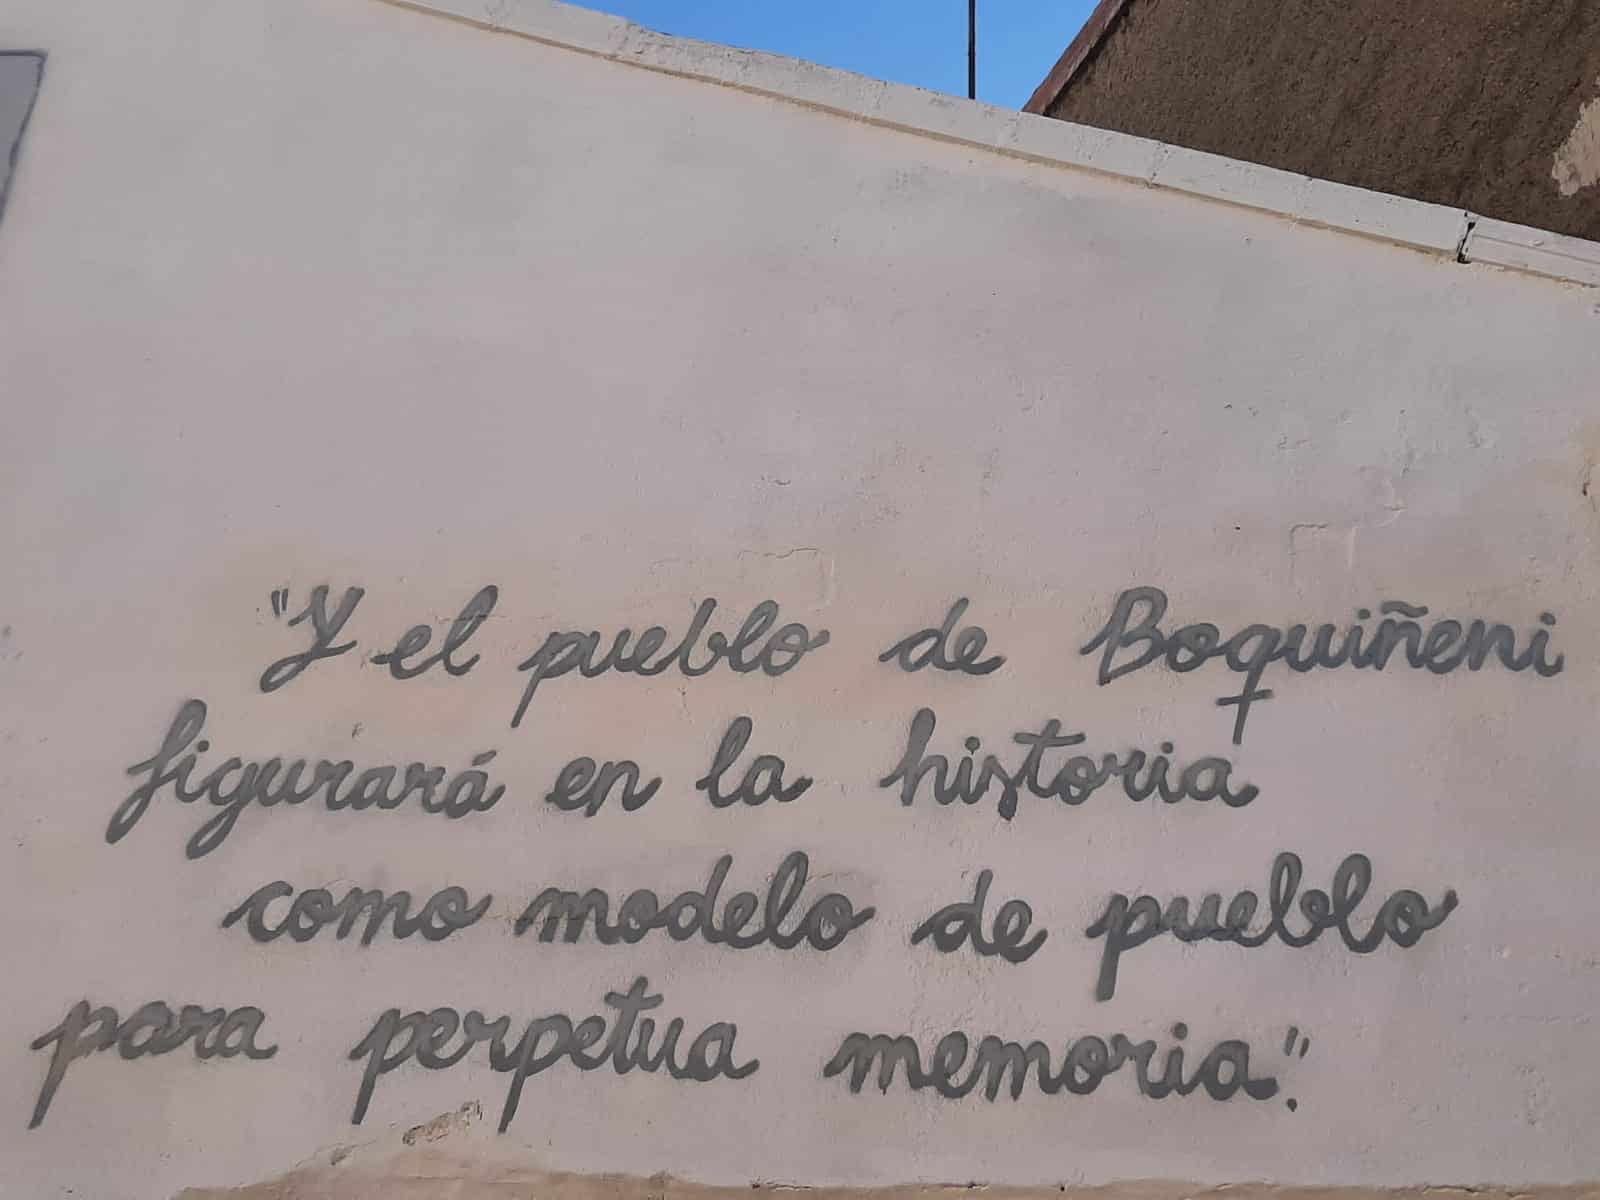 "Y el pueblo de Boquiñeni
figurará en la historia
como modelo de pueblo
para perpetua memoria".